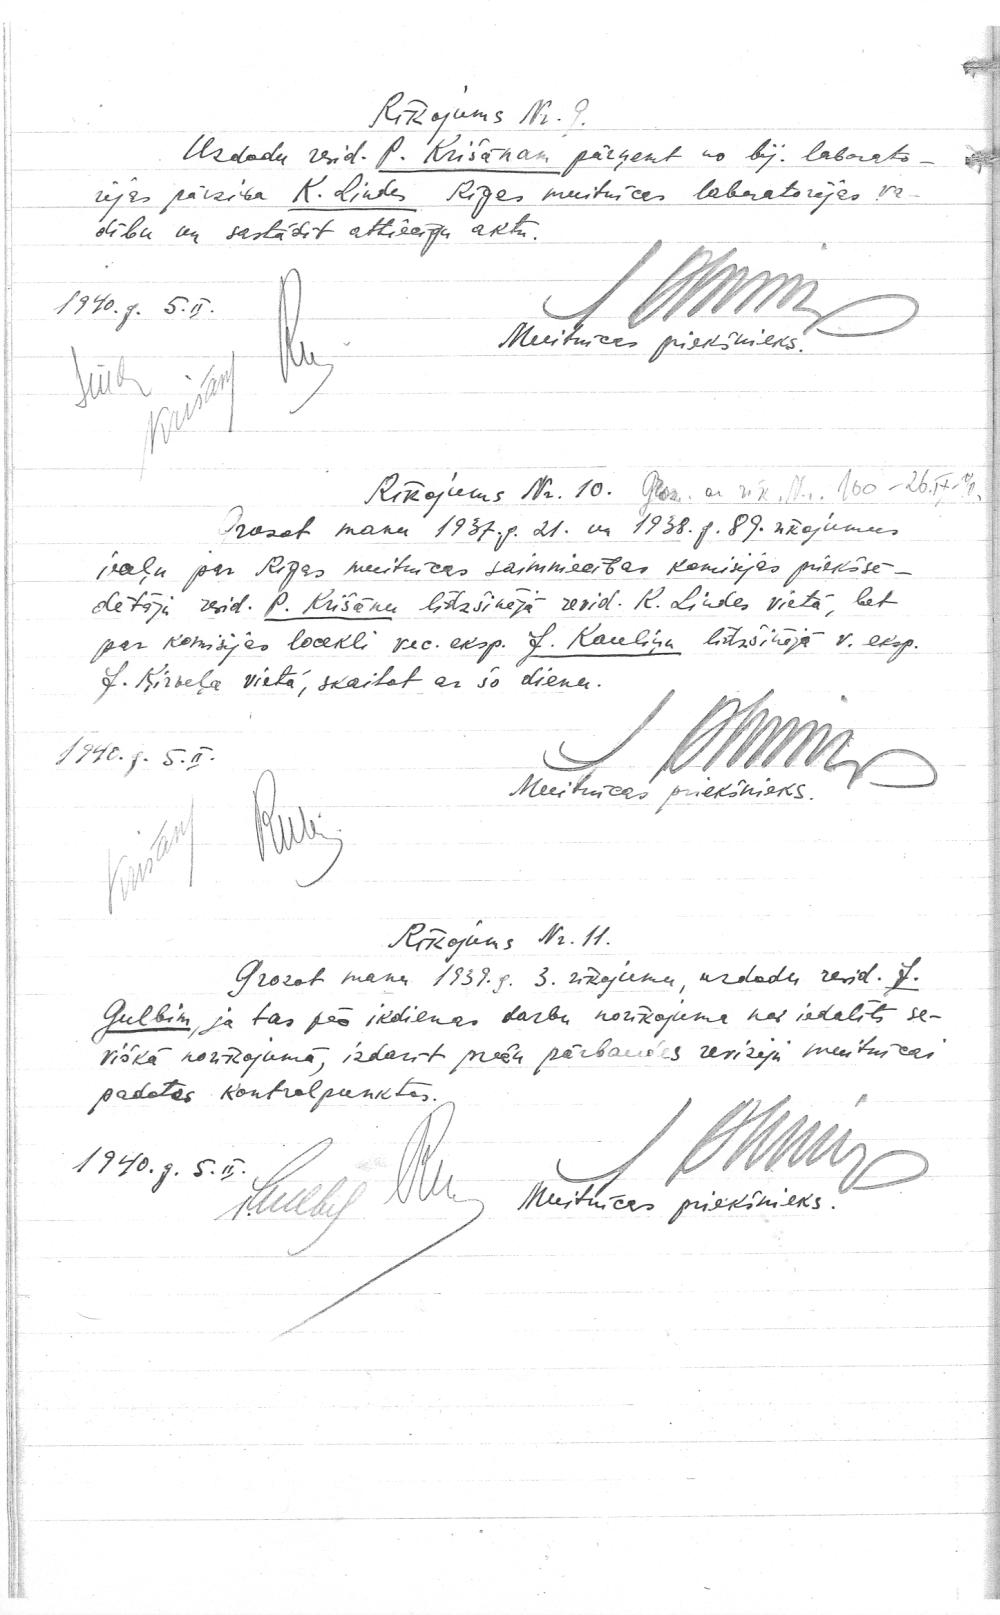 Rīkojums Nr. 9.
Uzdodu revid. P. Krišānam pārņemt no bij. laborato-
rijas pārziņa K. Lindes Rīgas muitnīcas laboratorijas va-
dību un sastādīt attiecīgu aktu.
1940.g. 5.II.
Muitnīcas priekšnieks.
Krišāns
Rīkojums Nr. 10. Groz. ar rīk. Nr. 160 - 26.IX.40.
Grozot manu 1937.g. 21. un 1938.g. 89. rīkojumus
ieceļu par Rīgas muitnīcas saimniecības komisijas priekšsē-
dētāju revid. P. Krišānu līdzšinējā revid. K. Lindes vietā, bet
par komisijas locekli vec. eksp. J. Kauliņu līdzšinējā v. eksp.
J. Ķirveļa vietā, skaitot ar šo dienu.
1940.g. 5.II.
Muitnīcas priekšnieks.
Krišāns
Rīkojums Nr. 11.
Grozot manu 1939.g. 3. rīkojumu, uzdodu revid. J.
Gulbim, ja tas pēc ikdienas darbu norīkojuma nav iedalīts se-
višķā norīkojumā, izdarīt preču pārbaudes revīziju muitnīcai
padotos kontrolpunktos.
1940.g. 5.II.
Muitnīcas priekšnieks.